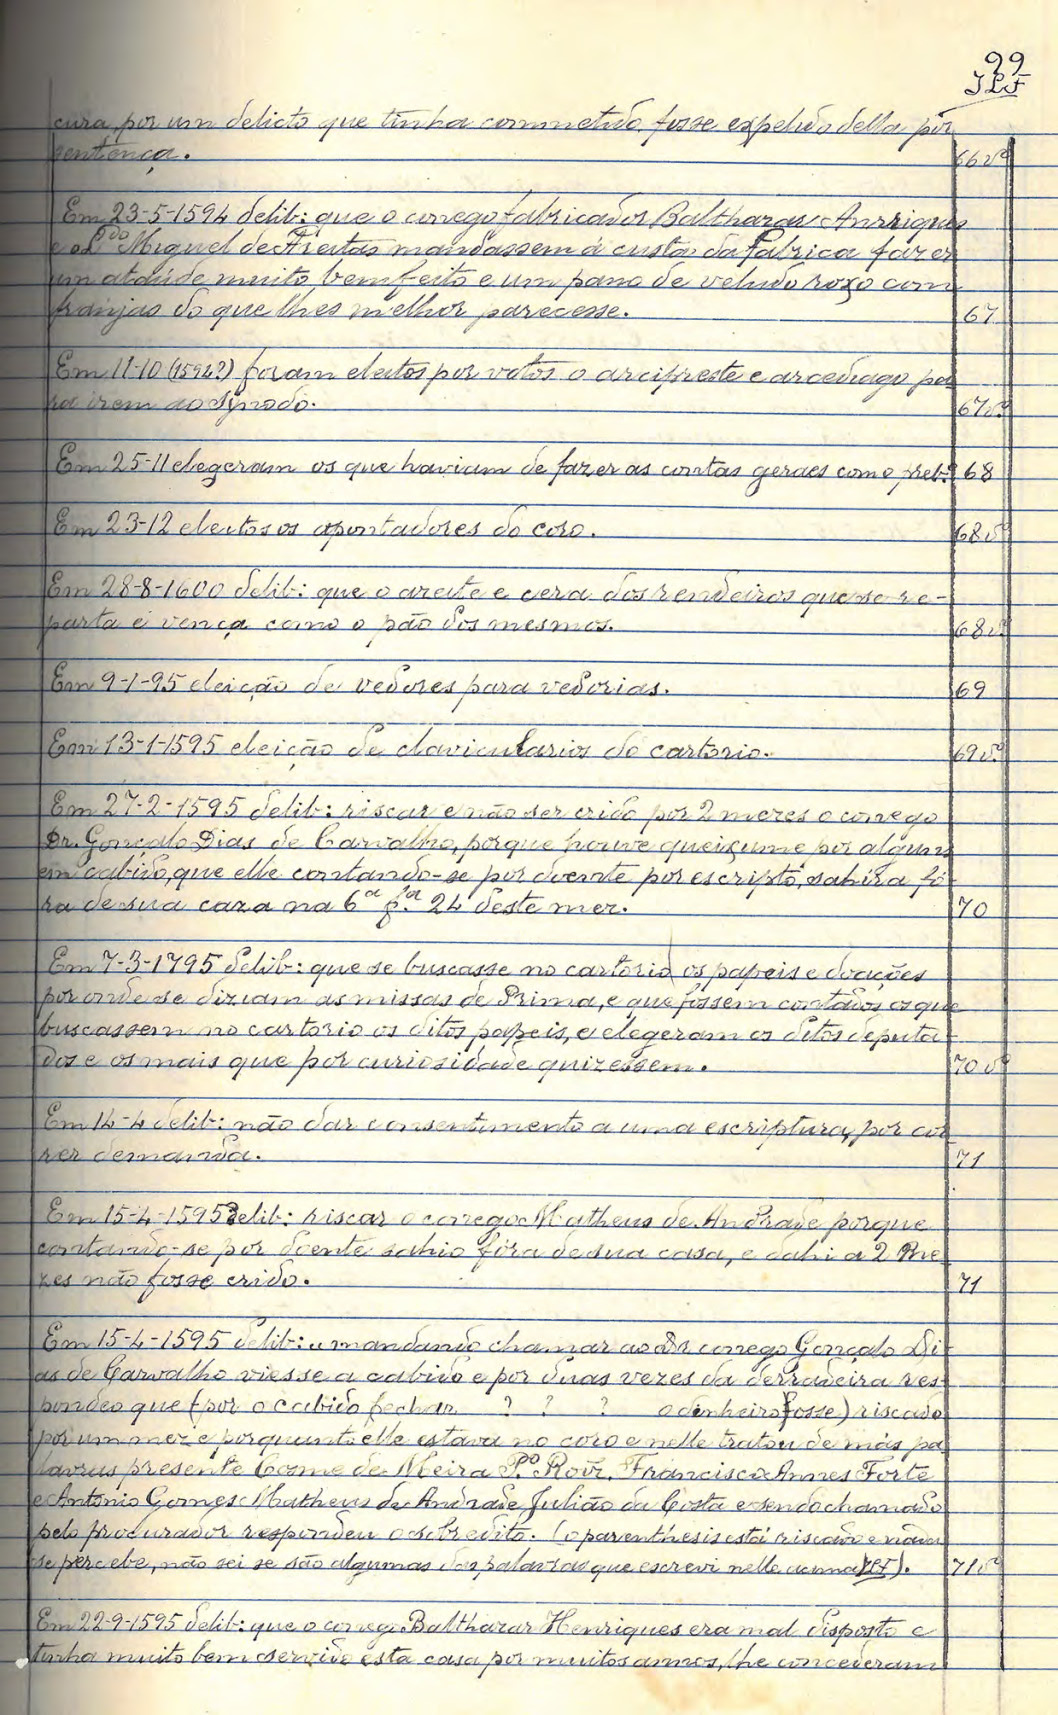 99
JLF
cura, por um delicto que tinha commetido, fosse expelido della por
sentença. 66vº
Em 23-5-1594 delib: que o conego fabricador Balthazar Anrriques
e o Ldo Miguel de Freitas mandassem á custa da fabrica fazer
um ataúde muito bem feito e um pano de veludo roxo com
franjas do que lhes melhor parecesse. 67
Em 11-10 (1594?) foram eleitos por votos o arcipreste e arcediago pa-
ra irem ao synodo. 67vº
Em 25-11 elegeram os que haviam de fazer as contas geraes com o preb.º 68
Em 23-12 eleitos os apontadores do coro. 68vº
Em 28-8-1600 delib: que o azeite e cera dos rendeiros que se re-
parta e vença como o pão dos mesmos. 68vº
Em 9-1-95 eleição de vedores para vedorias. 69
Em 13-1-1595 eleição de clavicularios do cartorio. 69vº
Em 27-2-1595 delib: riscar e não ser crido por 2 mezes o conego
Dr. Gonçalo Dias de Carvalho, porque houve queixume por alguns
em cabido, que elle contando-se por doente por escripto, sahira fó-
ra de sua caza na 6ª fª. 24 deste mez. 70
Em 7-3-1795 delib: que se buscasse no cartorio os papeis e doações
por onde se diziam as missas de Prima, e que fossem contados os que
buscassem no cartorio os ditos papeis, e elegeram os ditos deputa-
dos e os mais que por curiosidade quizessem. 70vº
Em 14-4 delib: não dar consentimento a uma escriptura, por cor-
rer demanda. 71
Em 15-4-1595 delib: riscar o conego Matheus de Andrade porque
contando-se por doente sahio fóra de sua casa, e dahi a 2 me-
zes não fosse crido. 71
Em 15-4-1595 delib: mandando chamar ao Dr conego Gonçalo Di-
as de Carvalho viesse a cabido e por duas vezes da derradeira res-
pondeo que (por o cabido fechar ? ? ? o dinheiro fosse) riscado
por um mez e porquanto elle estava no coro e nelle tratou de más pa-
lavras presente Cosme de Meira Pº Roiz, Francisco Annes Forte
e Antonio Gomes Matheus de Andrade Julião da Costa e sendo chamado
pelo procurador respondeu o sobredito. (o parenthesis está riscado e nada
se percebe, não sei se são algumas das palavras que escrevi nelle acima JLF). 71vº
Em 22-9-1595 delib: que o coneg. Balthazar Henriques era mal disposto e
tinha muito bem servido esta casa por muitos annos, lhe concederam